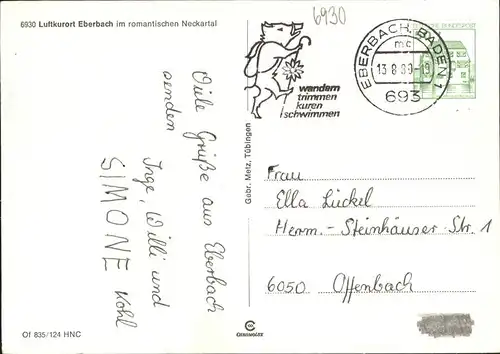 6930 Luftkurort Eberbach im romantischen Neckartal
6930
wandern
trimmen
kuren
schwimmen
EBERBACH, BADEN 1
mc
693
BUNDESPOST
Viele Grüße aus Eberbach
senden
Inge, Willi und
SIMONE Kohl
Gebr. Metz, Tübingen
Frau
Ella Lückel
Herm.-Steinhäuser-Str. 1
6050 Offenbach
Of 835/124 HNC
CHROMOLUX